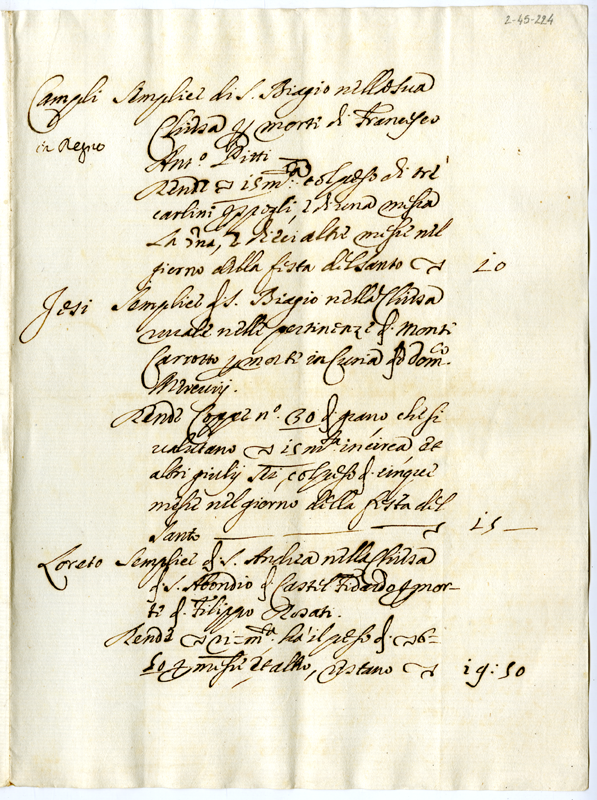 2-45-224
Campli Semplice di S. Biagio nella sua
in Regno Chiesa p morte di Francesco
Ant.º Pitti
Rende 15 m.ta col peso di tre
carlini, e di una messa
la, e dieci altre messe nel
giorno della festa del Santo 10
Jesi Semplice di S. Biagio nella Chiesa
rurale nelle pertinenze di Monte
Carrotto p morte in Curia di Dom.co
Rende Coppe n.º 30 di grano che si
valutano 15 m.ta in circa et
altri giulij sei, col peso di cinque
messe nel giorno della festa del
Santo 15
Loreto Semplice di S. Andrea nella Chiesa
di S. Abondio di Castel Fidardo p mor-
te di Filippo Rosati.
Rende 21 m.ta ha il peso di
50 p messe et altro, restano 19:50